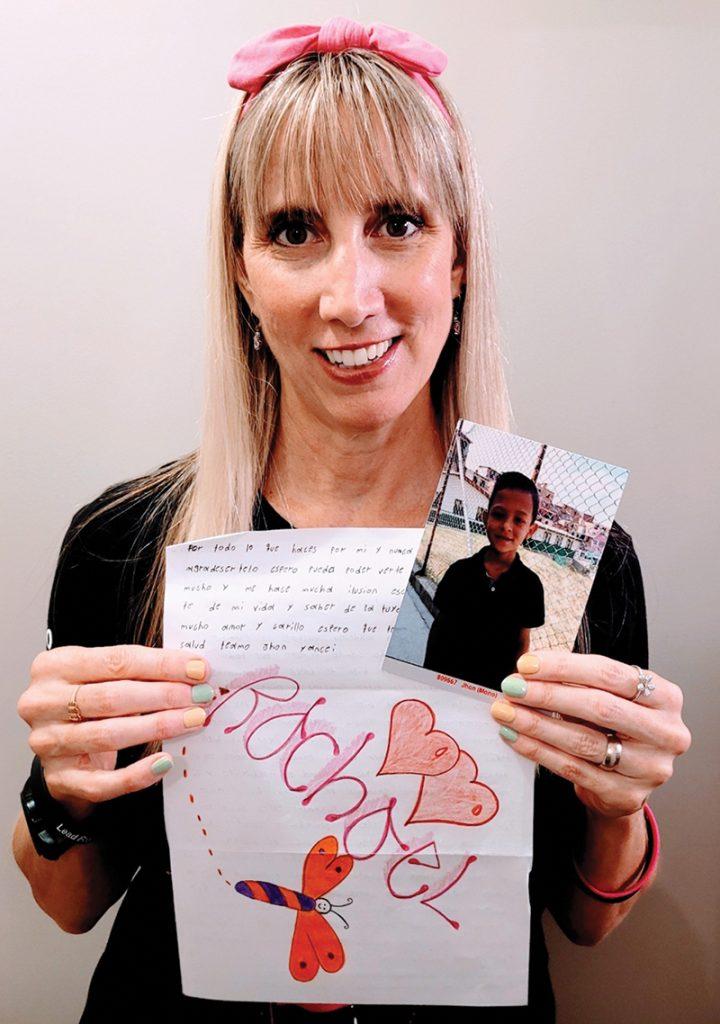 Por todo lo que haces por mi y nunca
agradesertelo espero pueda poder verte
mucho y me hace mucha ilusion esc
te de mi vida y saber de la tuya
mucho amor y carillo espero que te
salud teamo Jhon yancei
Rachael
809667 Jhon (Mono)
Lead